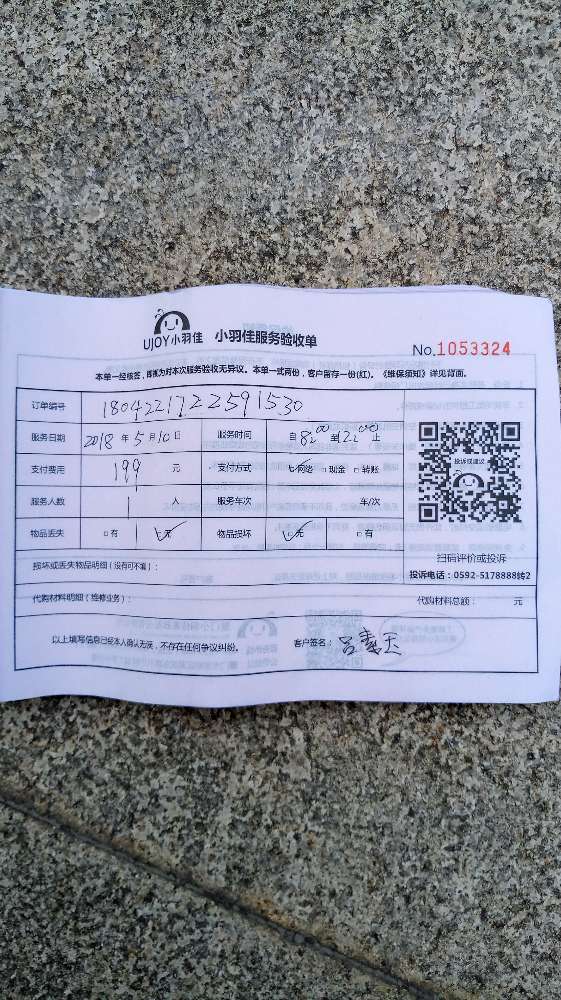 UJOY小羽佳 小羽佳服务验收单
No.1053324
本单一经核签，即视为对本次服务验收无异议。本单一式两份，客户留存一份(红)。《维保须知》详见背面。
订单编号 1804221722591530
服务日期 2018年5月10日 服务时间 自8:00至12:00止
支付费用 199元 支付方式 ☑网络 □现金 □转账
投诉或建议
服务人数 1人 服务车次 车/次
物品丢失 □有 ☑无 物品损坏 ☑无 □有
扫码评价或投诉
损坏或丢失物品明细(没有可不填)：
投诉电话：0592-5178888转2
代购材料明细(维修业务)： 代购材料总额： 元
以上填写信息已经本人确认无误，不存在任何争议纠纷。 客户签名：